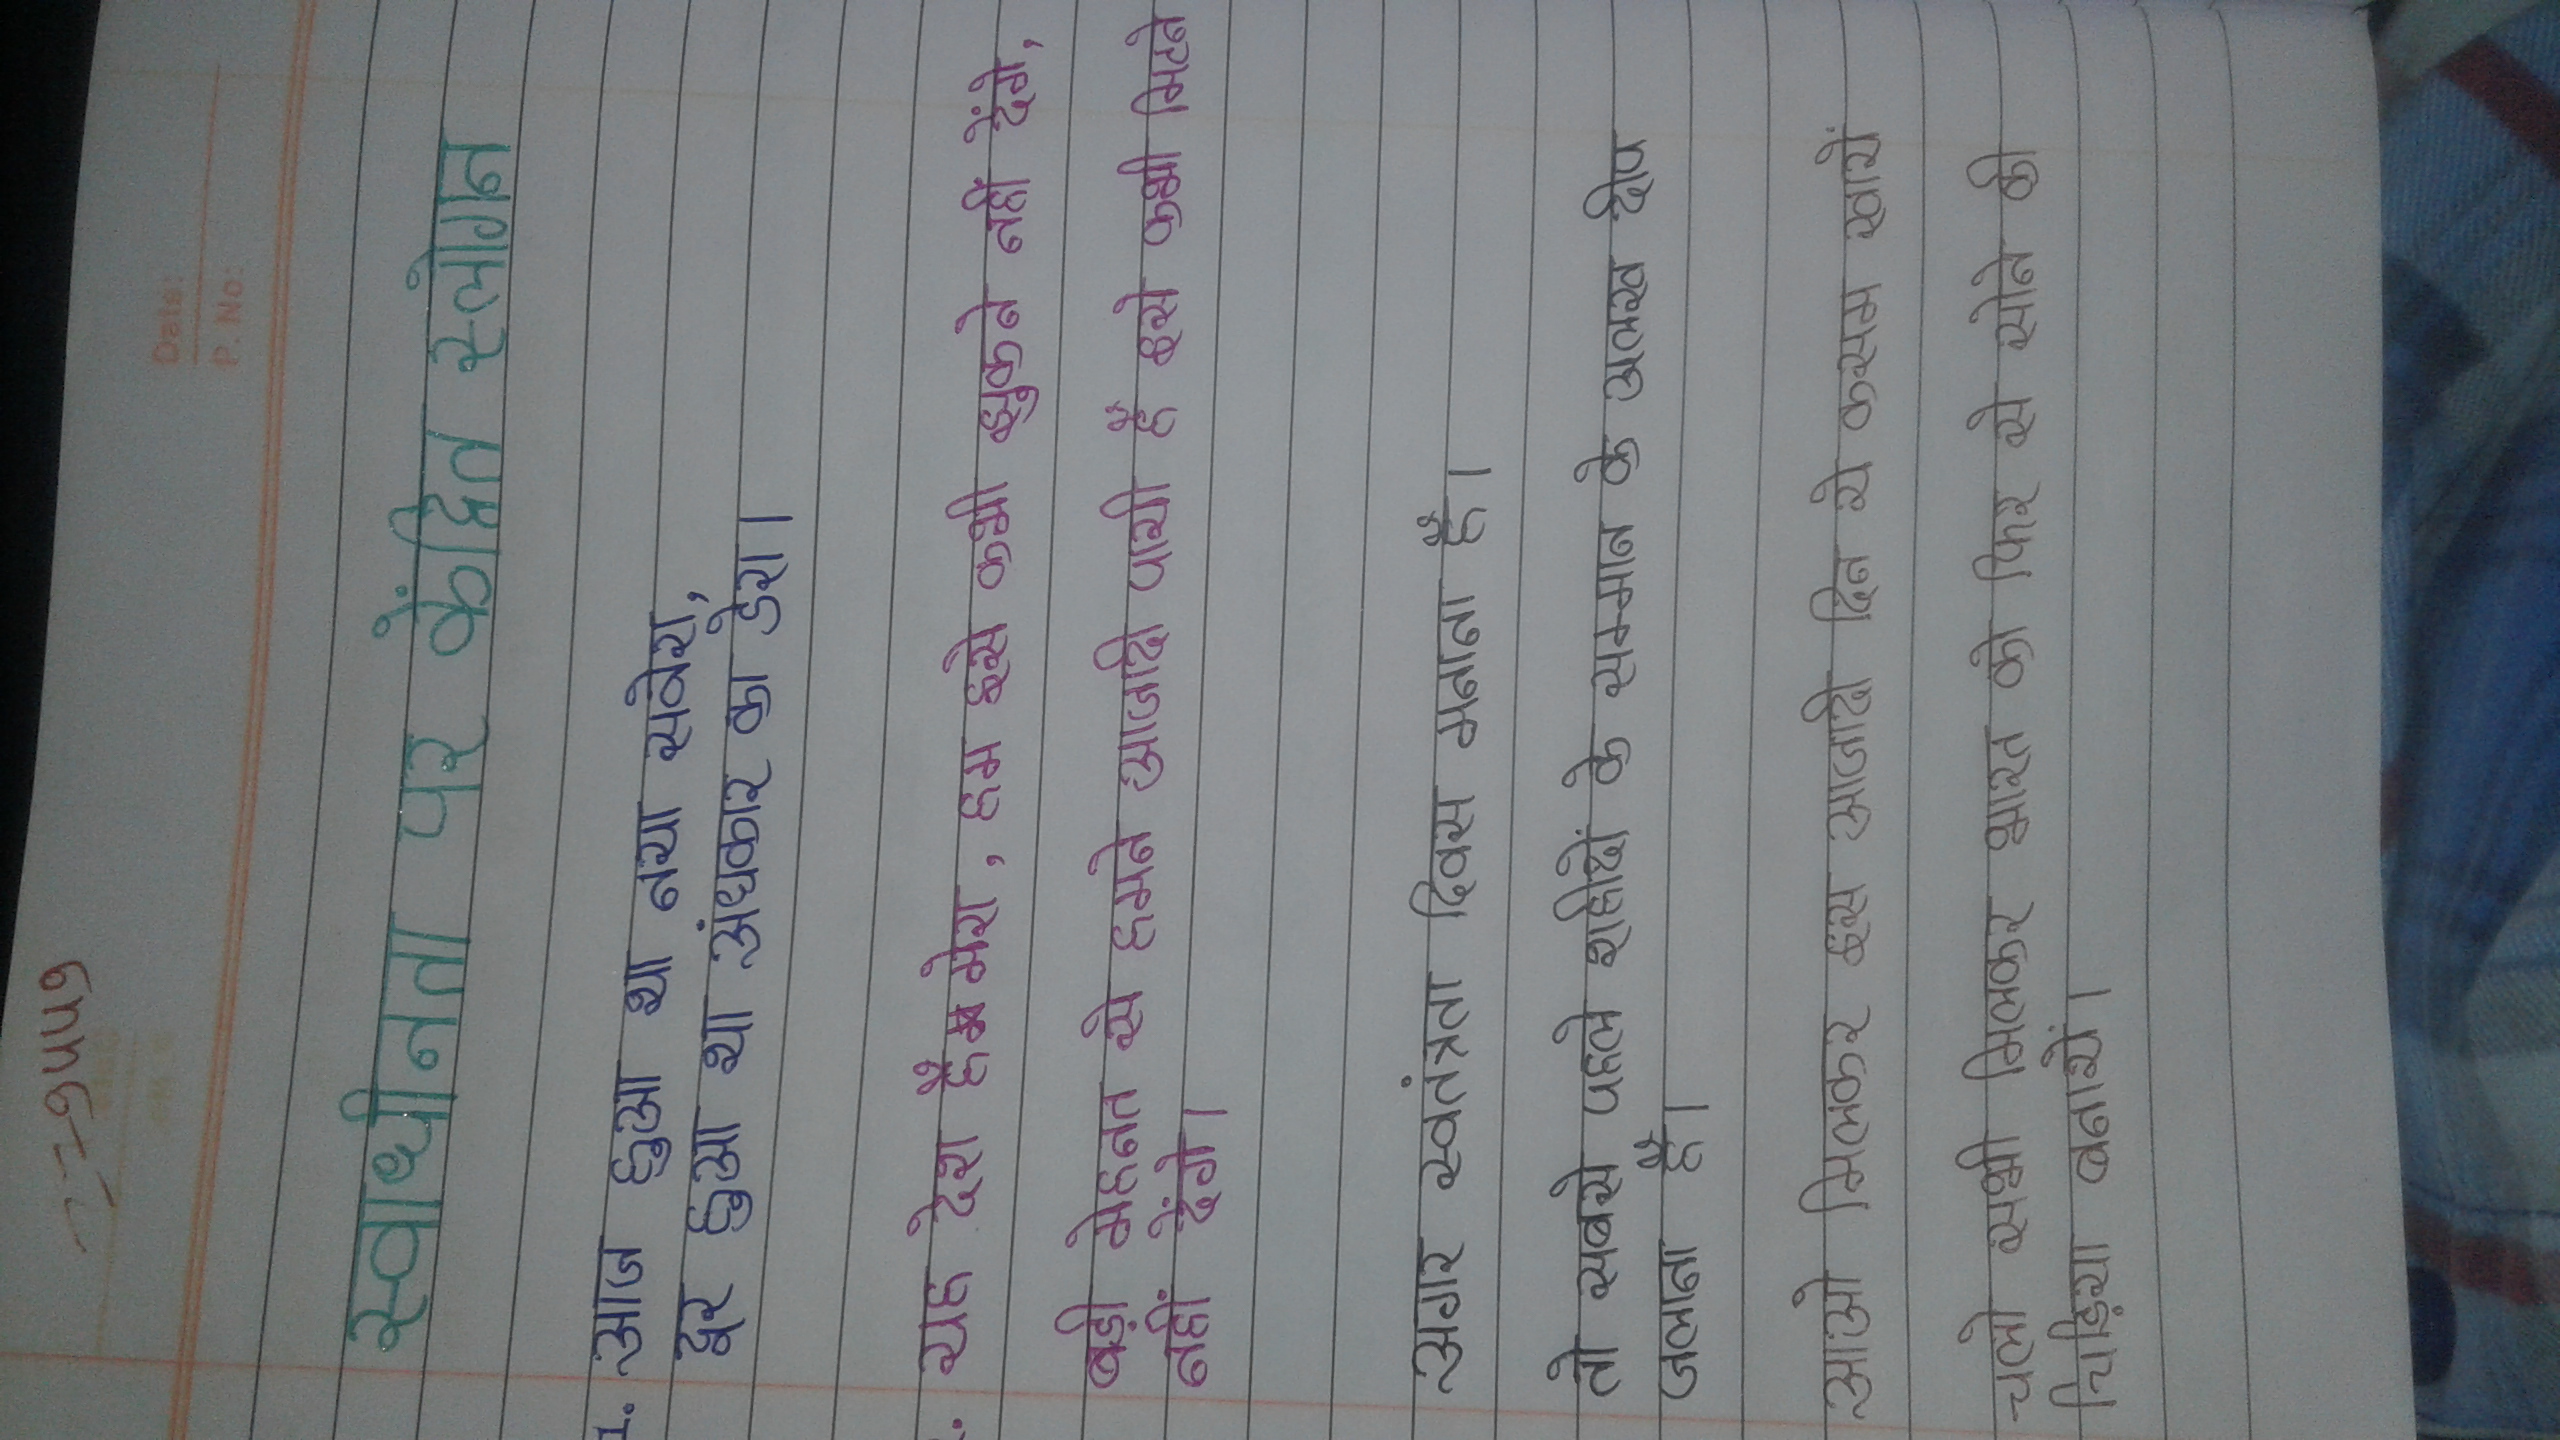 Date:
P. No:
स्वाधीनता पर केंद्रित स्लोगन
1. आज हुआ था नया सवेरा,
दूर हुआ था अंधकार का डेरा।
. यह देश है मेरा, हम इसे कभी झुकने नहीं देंगे,
बड़ी मेहनत से हमने आजादी पायी है इसे कभी मिटने
नहीं देंगे।
अगर स्वतंत्रता दिवस मनाना है।
तो सबसे पहले शहीदों के सम्मान के अलख दीप
जलाना है।
आओ मिलकर इस आजादी दिन ये कसम खायें
चलो सभी मिलकर भारत को फिर से सोने की
चिड़िया बनायें।